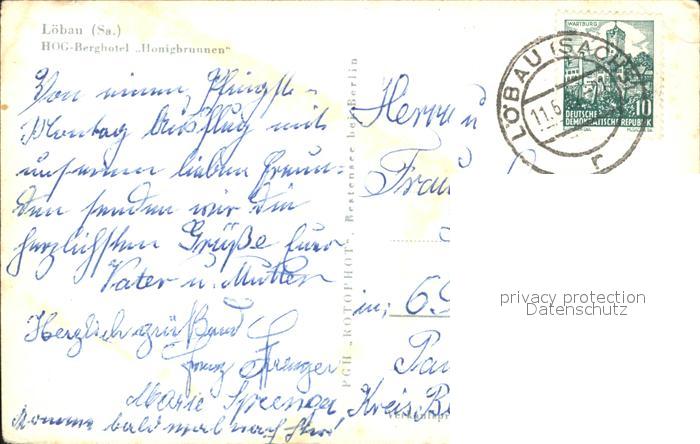 Löbau (Sa.)
HOG-Berghotel „Honigbrunnen"
Von einem Pfingst-
Montag Ausflug mit
unseren lieben Freun-
den senden wir die
herzlichsten Grüße Eure
Vater u. Mutter
Herzlich grüßend
Franz Sprenger
Marie Sprenger
Komme bald mal nach
PGH „ROTOPHOT", Bestensee bei Berlin
Herrn u
Frau
in:
Kreis.
WARTBURG
10
DEUTSCHE
DEMOKRATISCHE REPUBLIK
LÖBAU (SACHS)
11.6
r
privacy protection
Datenschutz